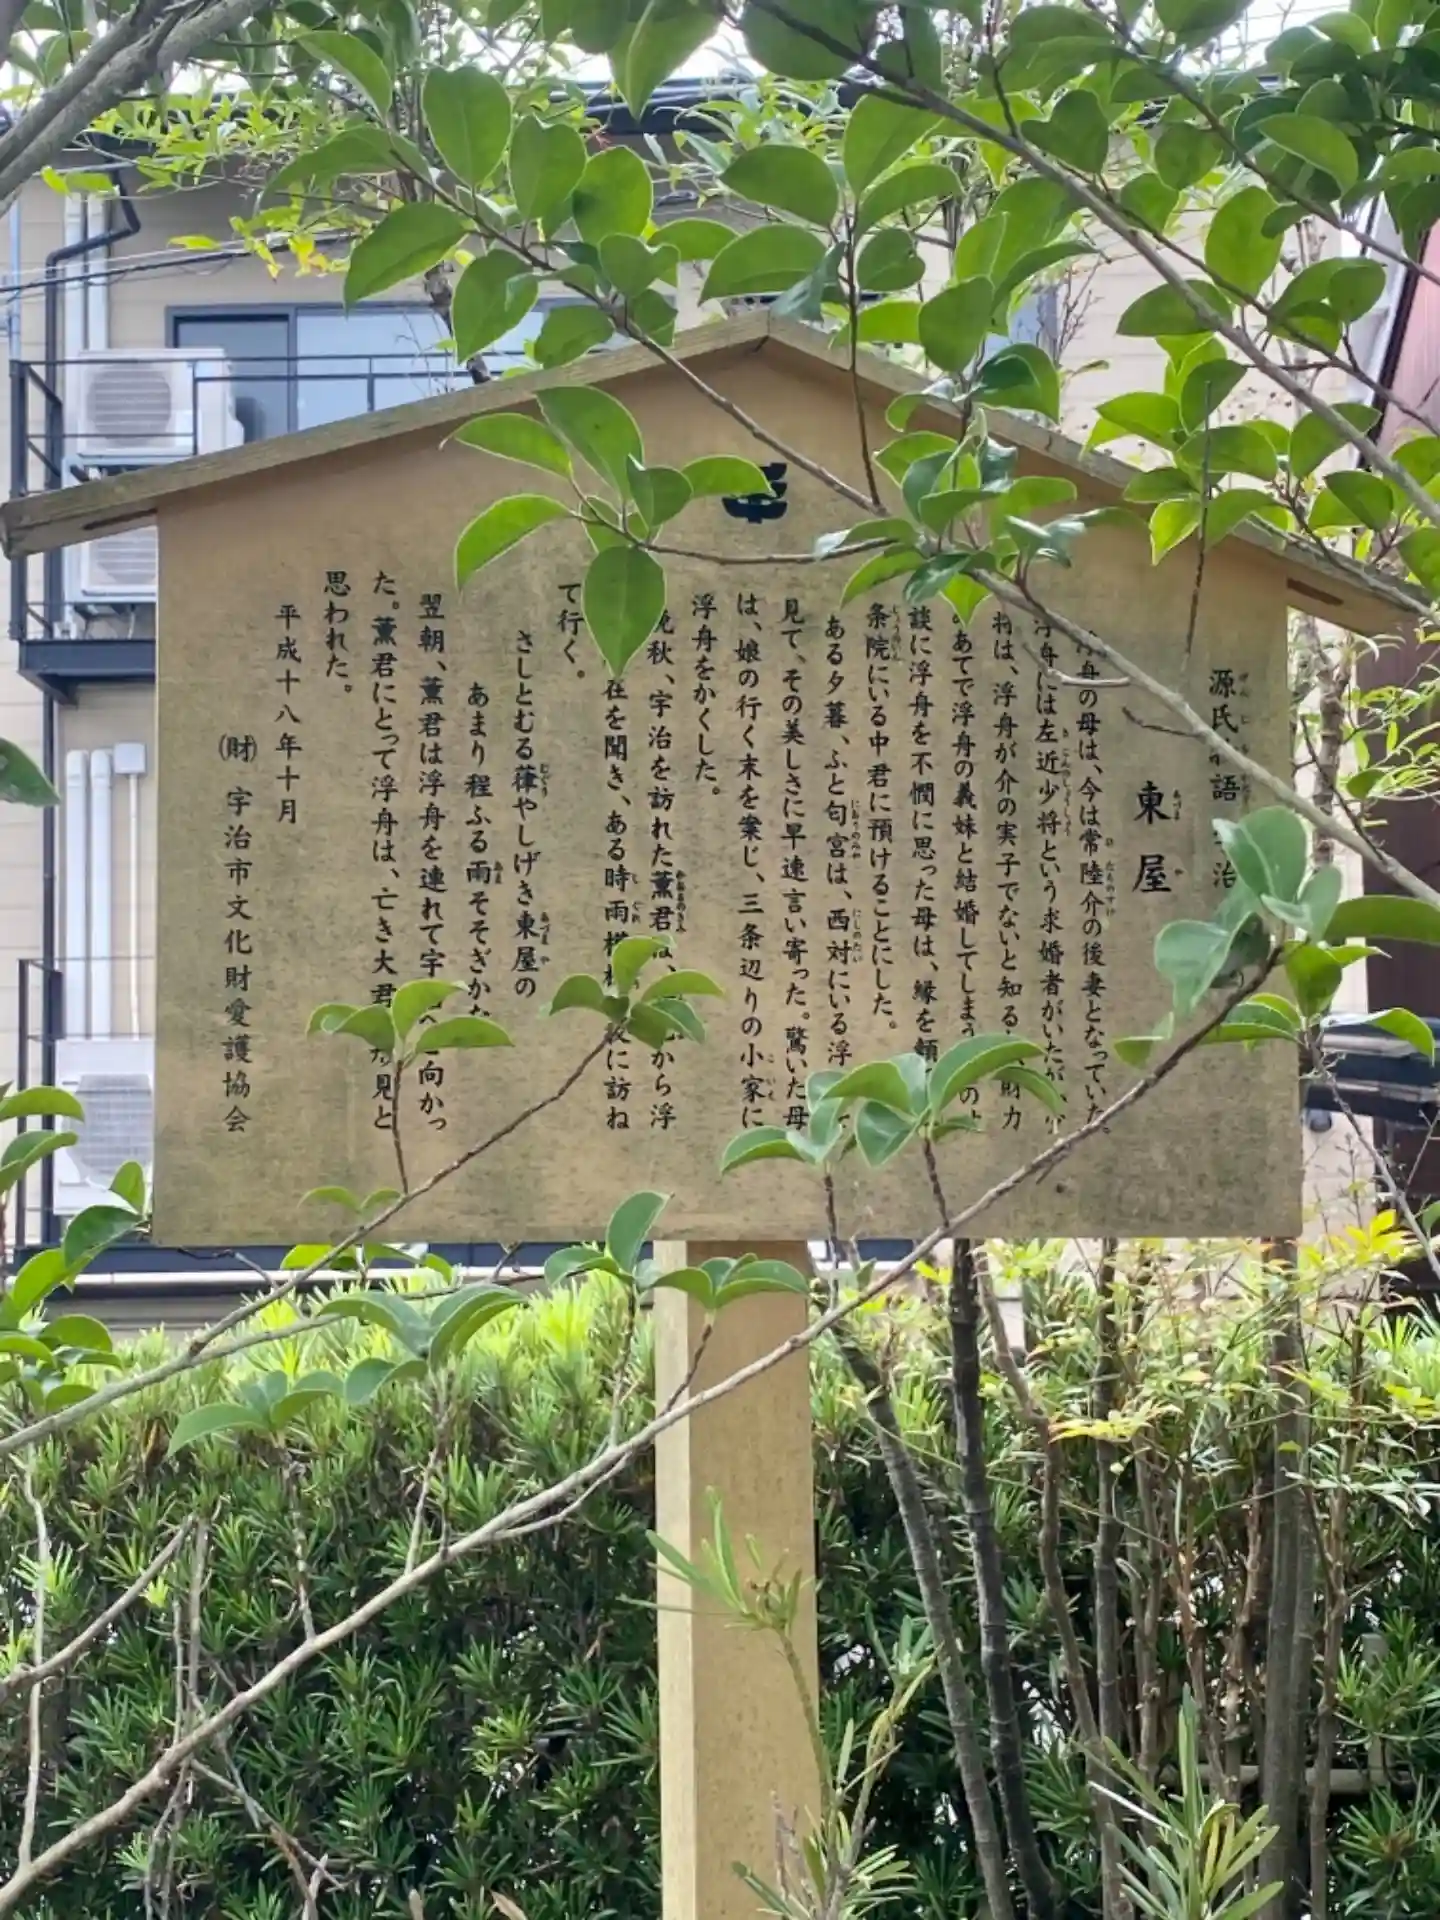 源氏 語 治
東屋
舟の母は、今は常陸介の後妻となっていた。
浮舟には左近少将という求婚者がいたが、少
将は、浮舟が介の実子でないと知る 財力
あてで浮舟の義妹と結婚してしまう の
談に浮舟を不憫に思った母は、縁を頼
条院にいる中君に預けることにした。
ある夕暮、ふと匂宮は、西対にいる浮
見て、その美しさに早速言い寄った。驚いた母
は、娘の行く末を案じ、三条辺りの小家に
浮舟をかくした。
晩秋、宇治を訪れた薫君は、 から浮
在を聞き、ある時雨模様 夜に訪ね
て行く。
さしとむる葎やしげき東屋の
あまり程ふる雨そそぎかな
翌朝、薫君は浮舟を連れて宇 へ向かっ
た。薫君にとって浮舟は、亡き大君 見と
思われた。
平成十八年十月
㈶宇治市文化財愛護協会